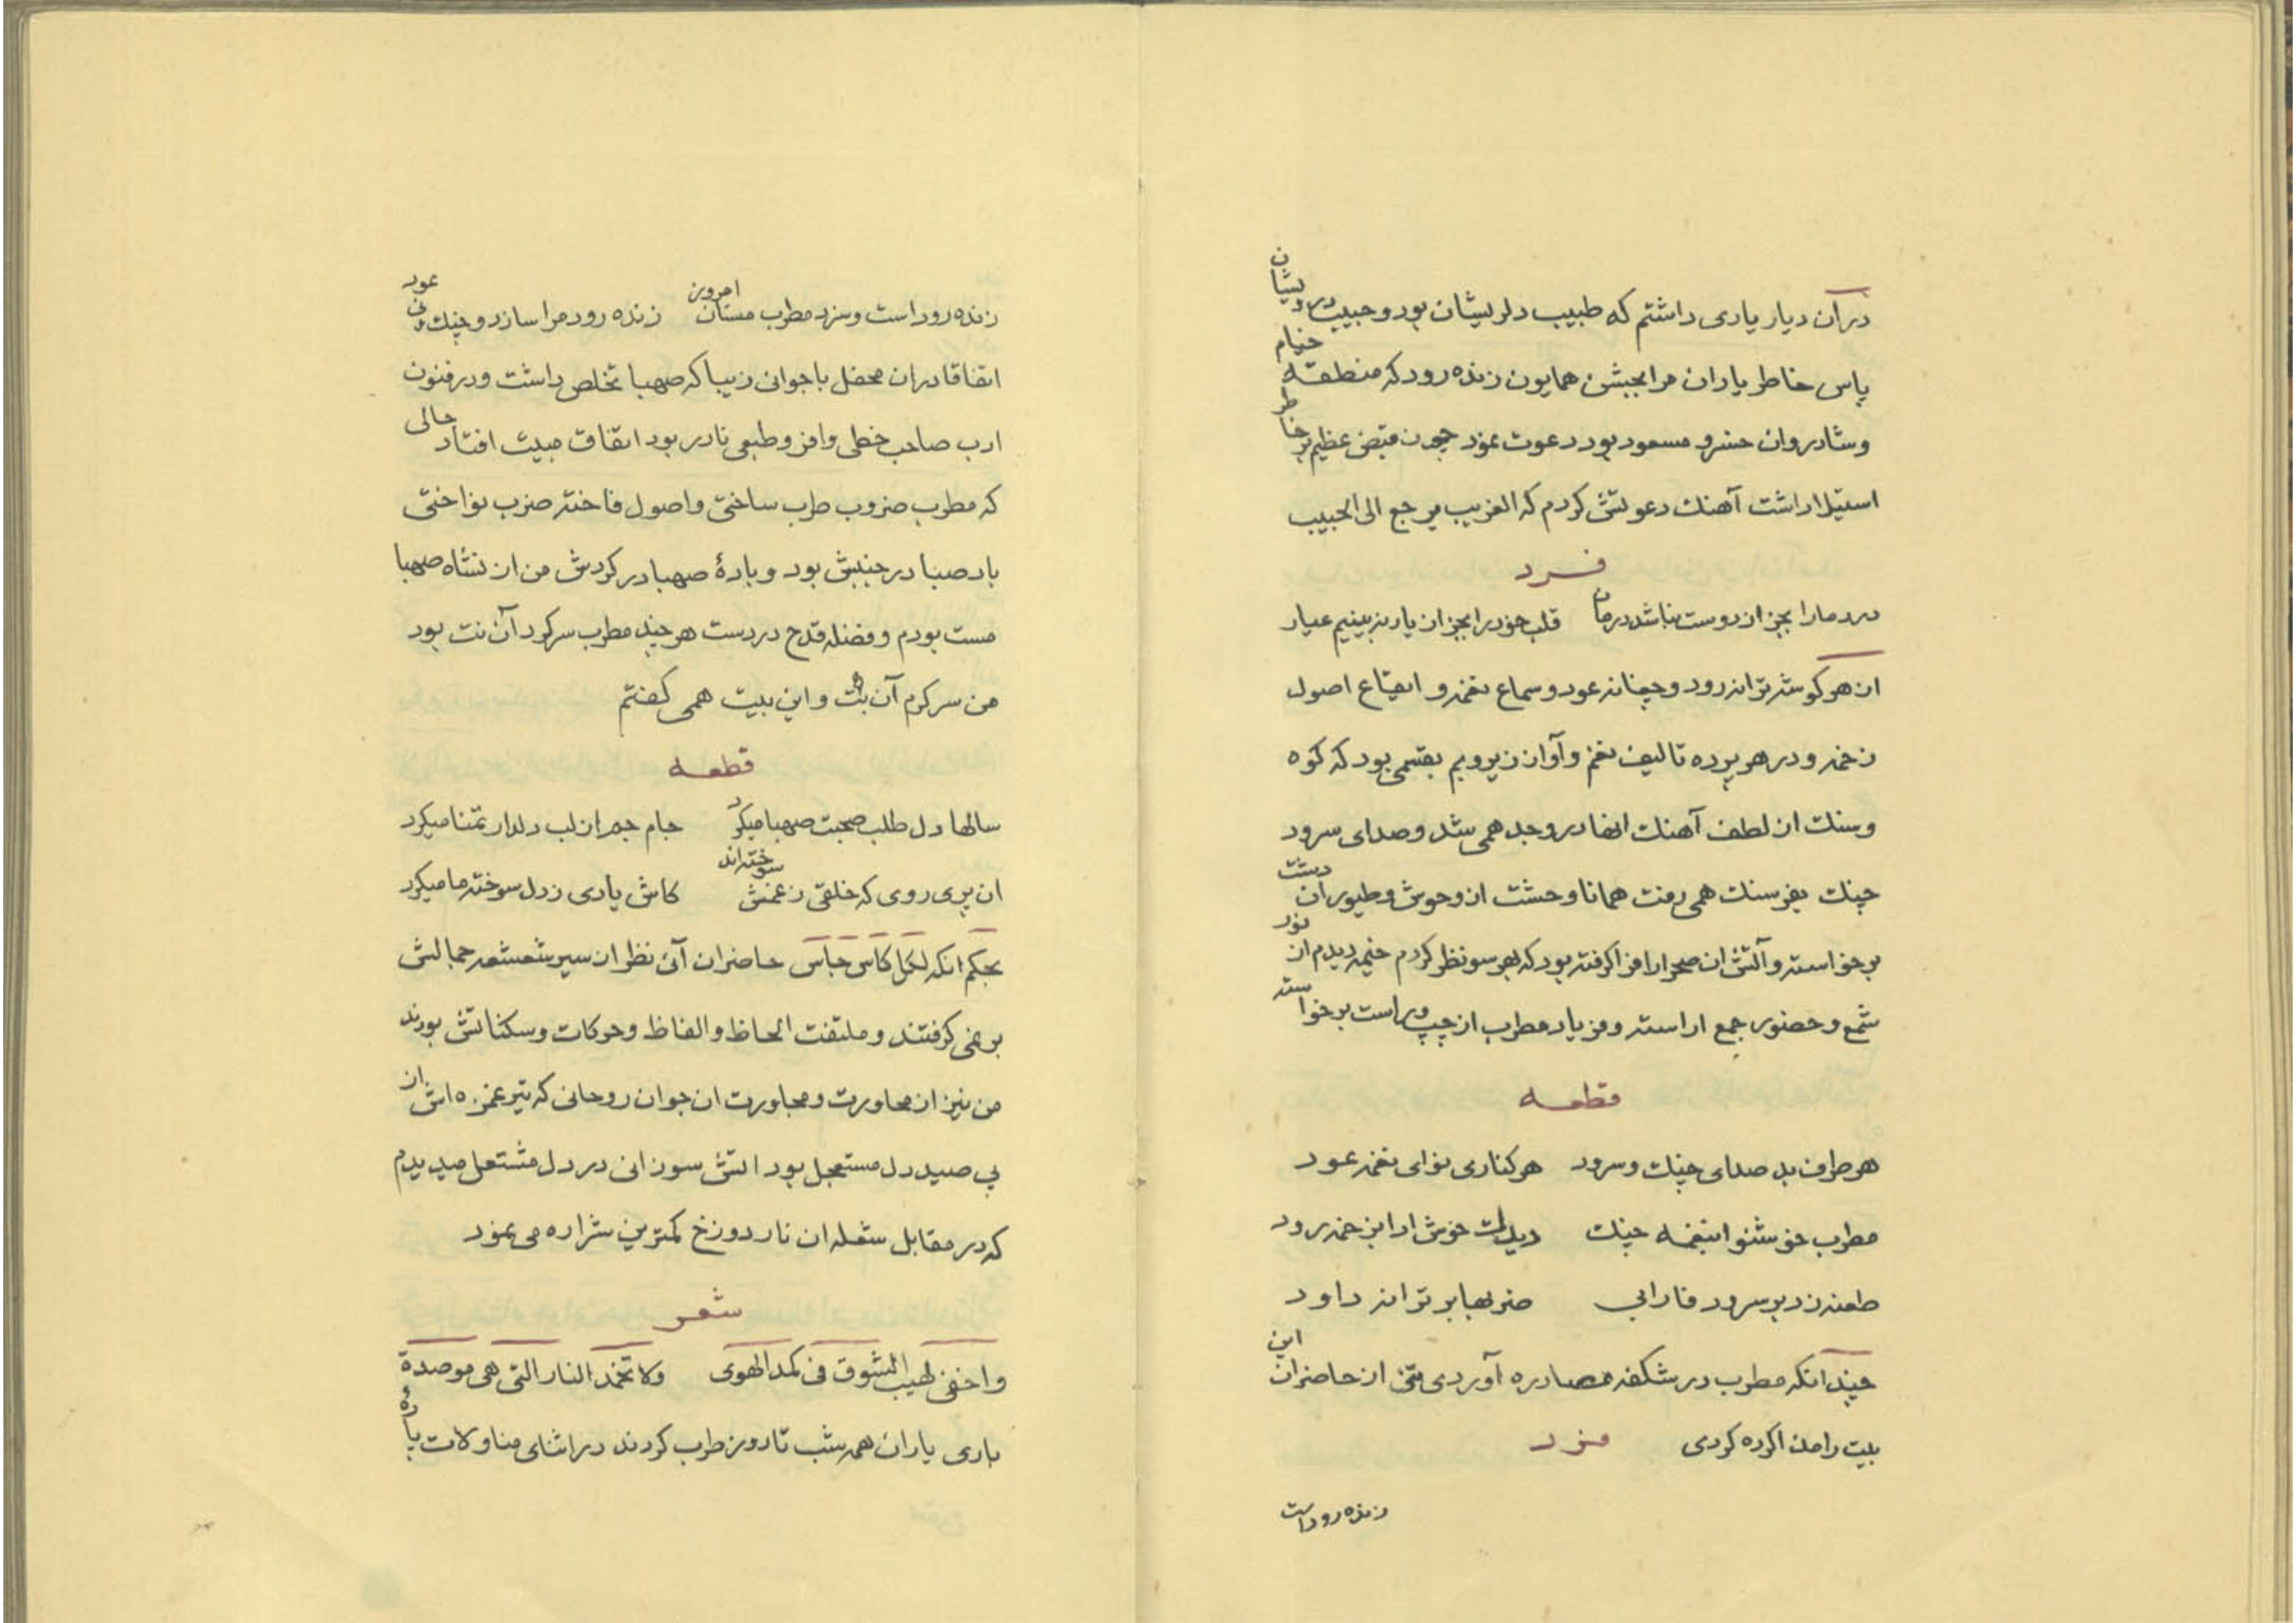 درآن دیار یاری داشتم که طبیب دلریشان بود و حبیب درویشان
پاس خاطر یاران مرا بجشن همایون زنده رود که منطقه خیام
وشادروان خسرو مسعود بود دعوت نمود چون قبض عظیم بر خاطر
استیلا داشت آهنك دعوتش کردم که الغریب یرجع الی الحبیب
فرد
درد مارا بجز از دوست نباشد درمان قلب خود را بجز از یار نه بینیم عیار
از هر گوشه ترانه رود و چغانه عود و سماع نغمه و ایقاع اصول
زخمه ودر هر پرده تالیف نغم وآواز زیر وبم بقسمی بود که کوه
وسنك از لطف آهنك انها در وجد همی شد وصدای سرود
چنك بفرسنك همی رفت همانا وحشت از وحوش وطیور ان دشت
برخواسته وآتش ان صحرا را فرا گرفته بود که بهر سو نظر کردم خیمه دیدم از نور
شمع وحضور جمع اراسته وفریاد مطرب از چپ وراست برخواسته
قطعه
هر طرف بد صدای چنك وسرود هر کناری نوای نغمه عود
مطرب خوشنوا بنغمه چنك خوش ادا بزخمه رود
طعنه زد بر سرود فارابی ضربها بر ترانه داود
چند آنکه مطرب در شکفه مصادره آوردی متن از حاضران این
بیت را مذاکره کردی فرد
زنده روداست
زنده روداست وسزد مطرب مستان امروز زنده رود مرا سازد وچنك ونی عود
اتفاقا دران محفل باجوانی زیبا که صهبا تخلص داشت ودر فنون
ادب صاحب خطی وافر وطبعی نادر بود اتفاق مبیت افتاد حالی
که مطرب ضروب طرب ساختی واصول فاخته ضرب نواختی
باد صبا در جنبش بود وبادهٔ صهبا در گردش من از نشاه صهبا
مست بودم وفضله قدح دردست هر چند مطرب سرگرد آن نت بود
من سرگرم آن بت واین بیت همی گفتم
قطعه
سالها دل طلب صحبت صهبا میکرد جام جم از لب دلدار تمنا میکرد
ان پری روی که خلقی زغمش سوخته اند کاش یادی زدل سوخته ما میکرد
بحکم انکه لکل کاس حاس حاضران آنی نظر از سیر شعشعه جمالش
بر نمی گرفتند وملتفت الحاظ والفاظ وحرکات وسکناتش بودند
من نیز از محاورت ومجاورت ان جوان روحانی که تیر غمزه اش از
پی صید دل مستعجل بود اتش سوزانی در دل مشتعل میدیدم
که در مقابل شعله ان نار دوزخ کمترین شراره می نمود
شعر
واخفی لهیب الشوق فی کمد الهوی ولا تخمد النار التی هی موصدة
باری یاران همه شب تا روز طرب کردند در اثنای مناولات باده